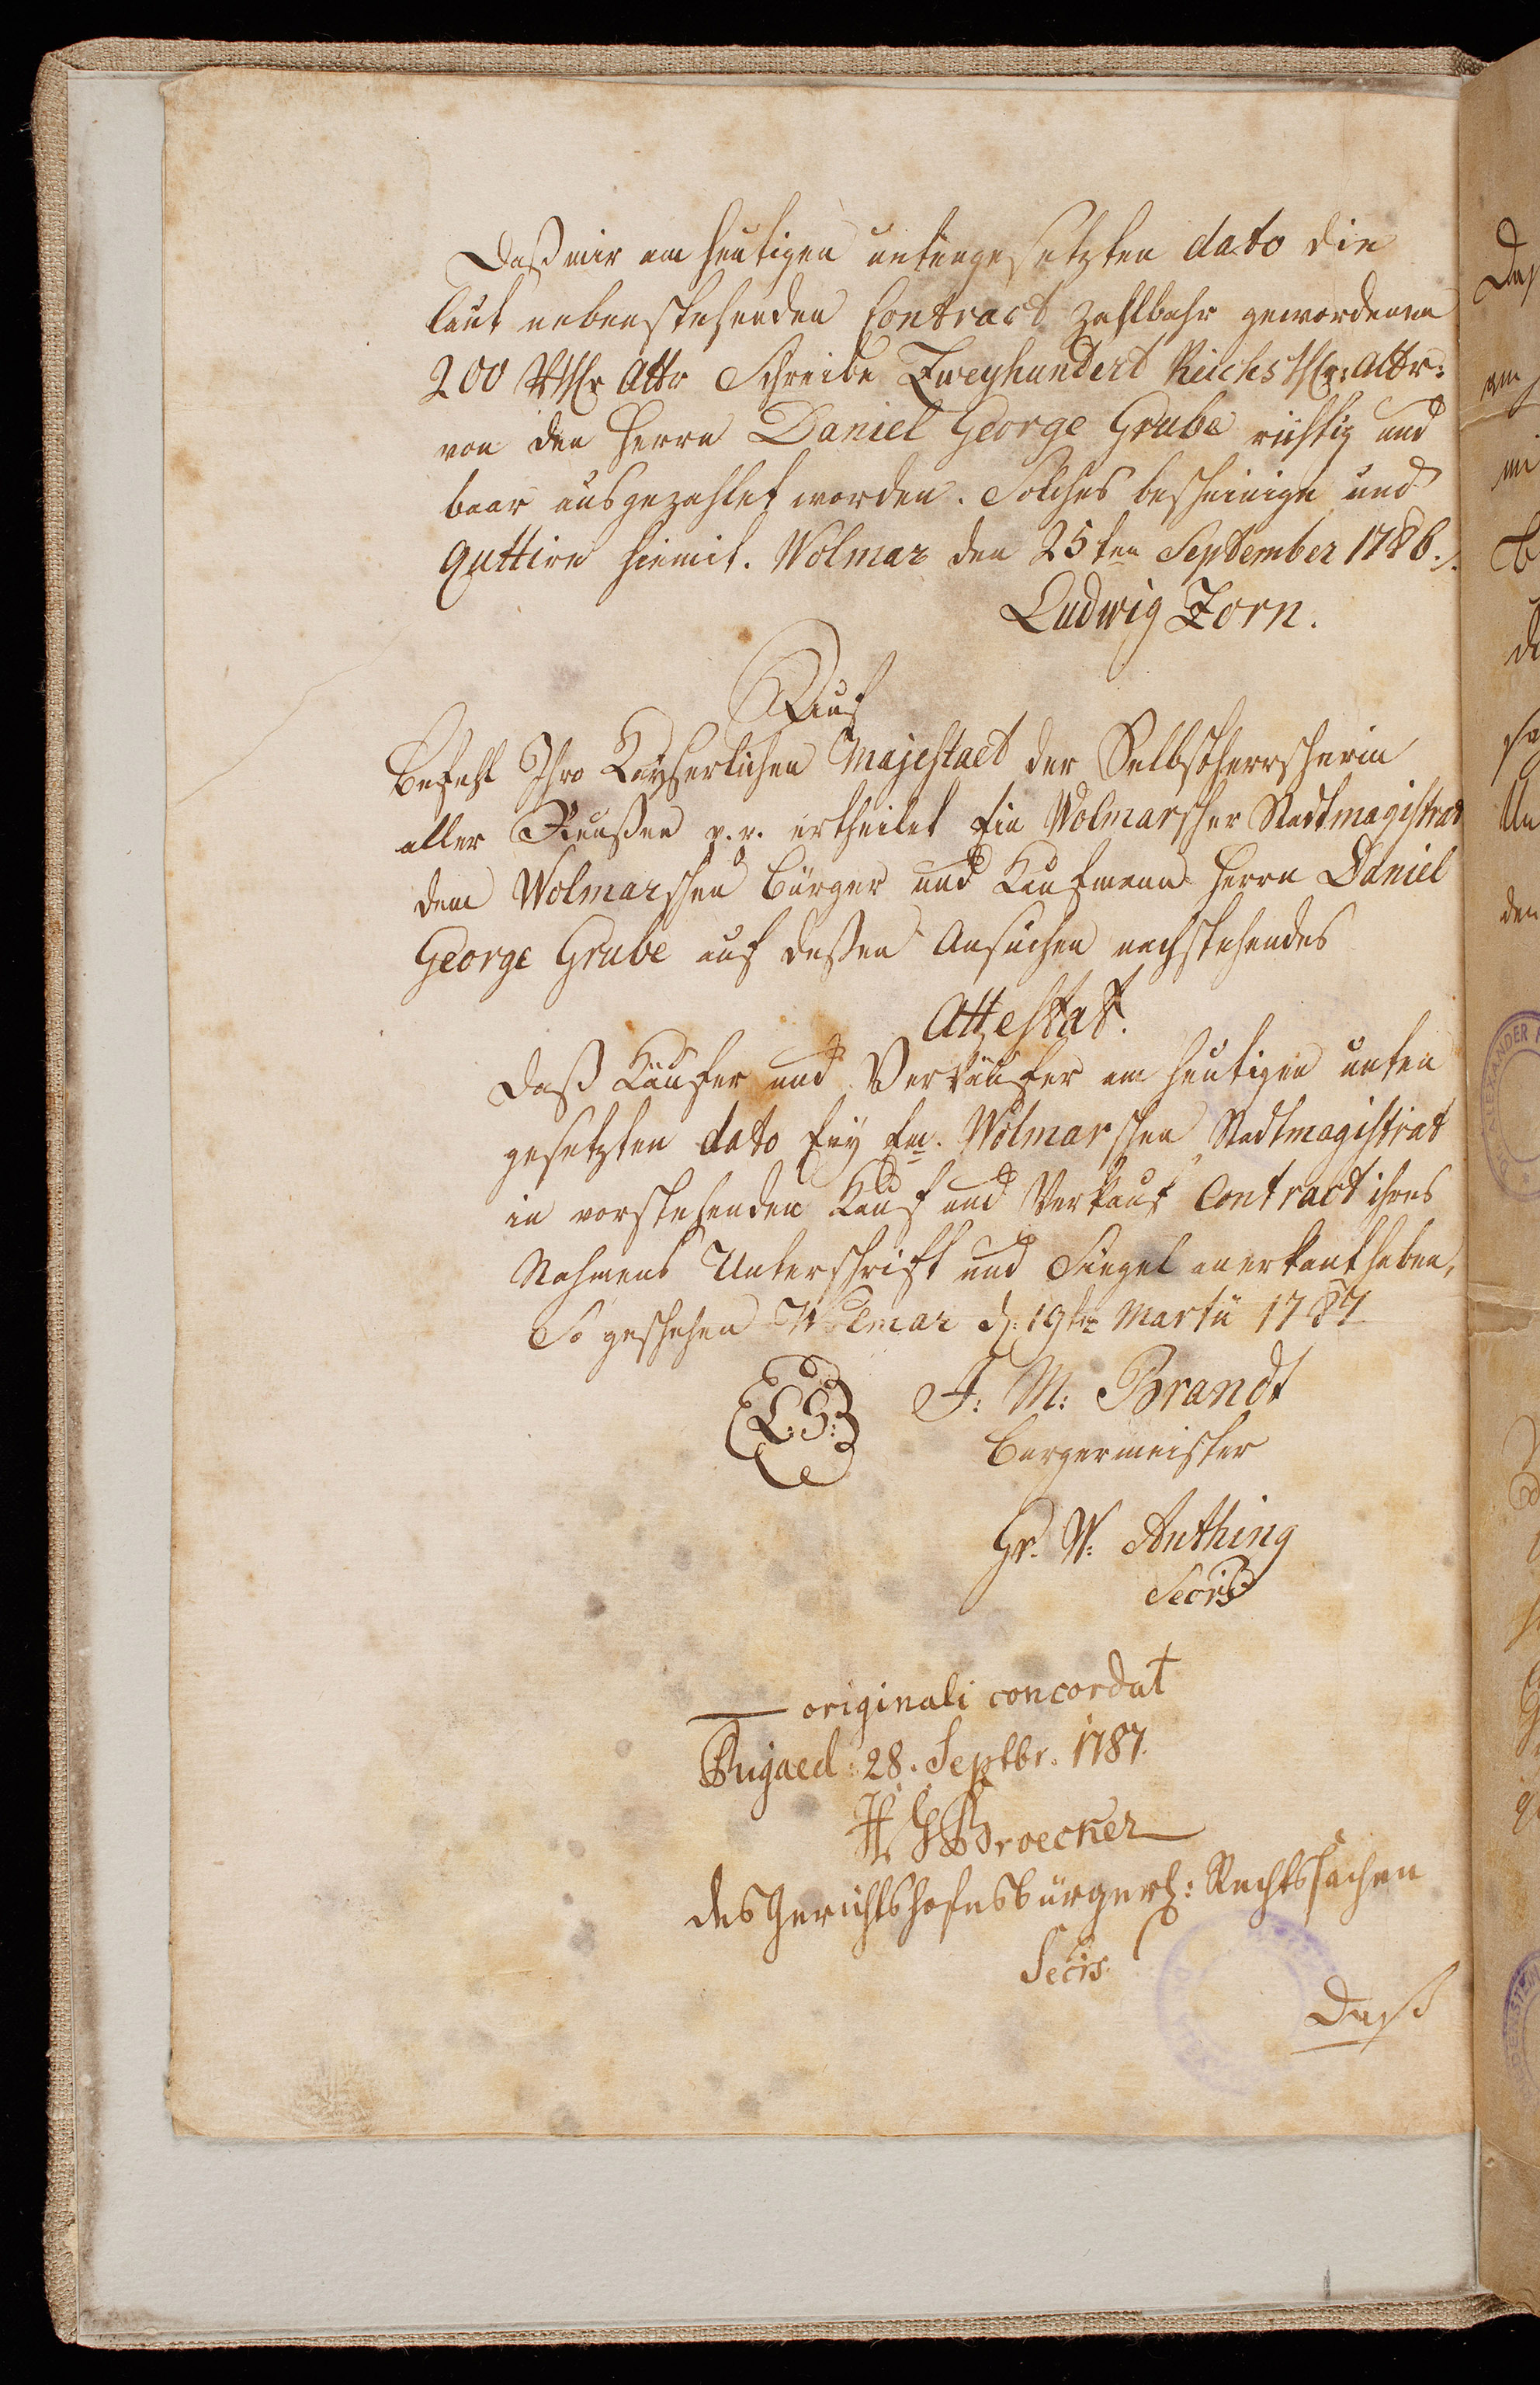 Daß mir am heutigen untengesetzten dato die
laut nebenstehenden Contract zahlbahr gewordenen
200 Rthlr Albr Schreibe Zweyhundert Reichsthlr: Albr:
von den Herrn Daniel George Grube richtig und
baar ausgezahlet worden. Solches bescheinige und
Quttire hiemit. Wolmar den 25ten September 1786.
Ludwig Zorn.
Auf
Befehl Ihro Kayserlichen Majestaet der Selbstherrscherin
aller Reußen p. p. ertheilet Ein Wolmarscher Stadtmagistrat
dem Wolmarschen Bürger und Kaufmann Herrn Daniel
George Grube auf deßen Ansuchen nachstehendes
Attestat.
Daß Käufer und Verkäufer am heutigen unten
gesetzten dato bey Em. Wolmarschen Stadtmagistrat
in vorstehenden Kauf und Verkauf Contract ihres
Nahmens Unterschrift und Siegel anerkant haben,
So geschehen Wolmar d: 19ten Martii 1787
L: S:
J: M: Brandt
Burgermeister
Gr. W: Anthing
Secris
originali concordat
Rigaed: 28. Septbr. 1787.
H. G Broecker
des Gerichtshofes bürgerl: Rechtssachen
Secrs.
Daß